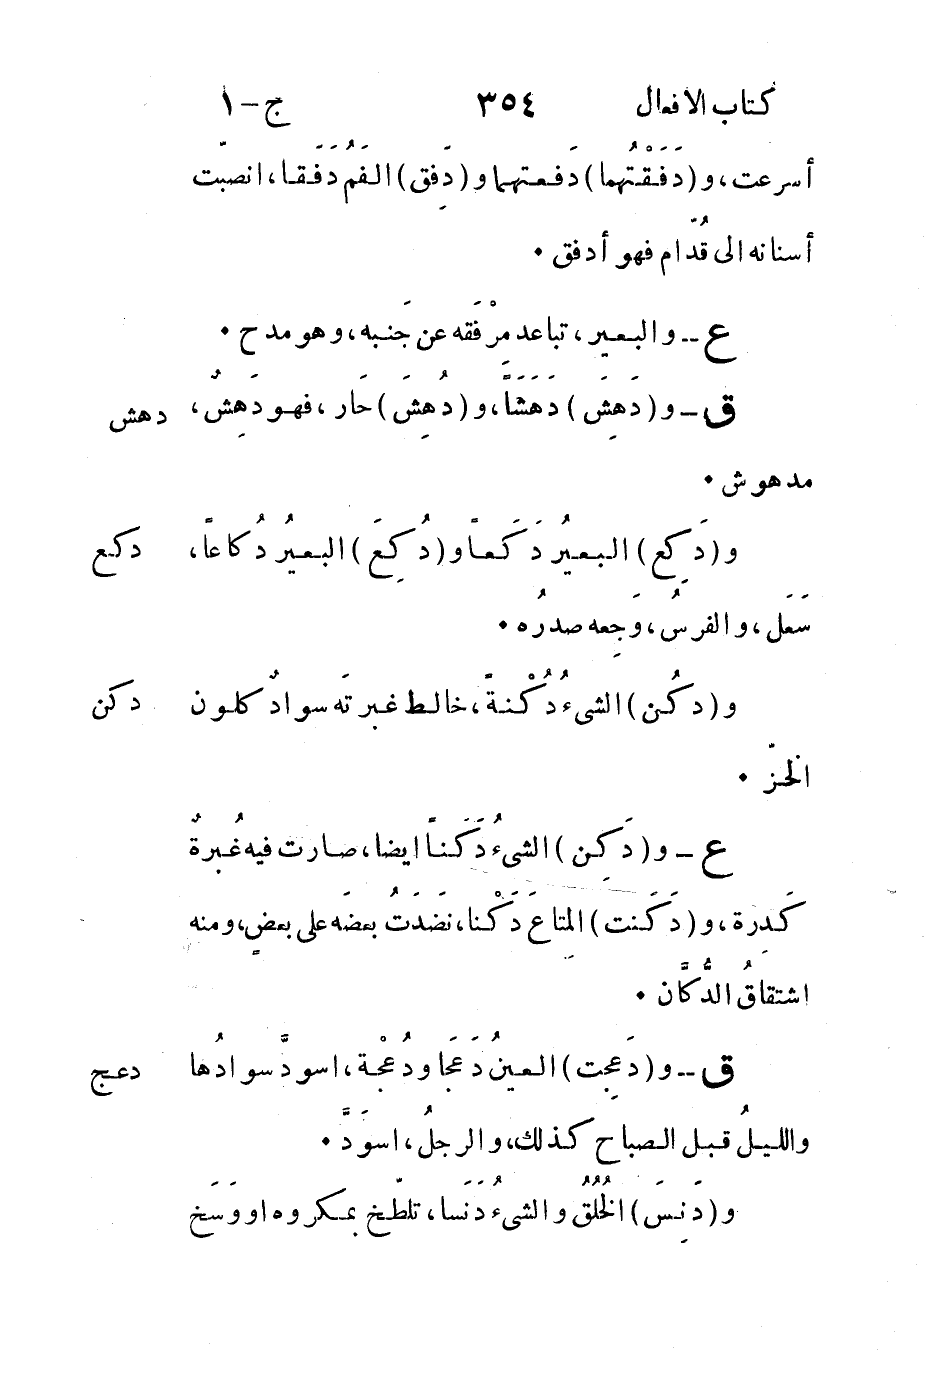 كتاب الافعال ٣٥٤ ج-١
أسرعت، و (دَفَقْتُهما) دَفعتهما و (دَفِق) الفَمُ دَفَقا، انصبّت
أسنانه الى قُدّام فهو أدفق •
ع – والبعير، تباعد مِرْفَقه عن جَنبه، وهو مدح •
ق – و (دَهِشَ) دَهَشَاً، و (دُهِشَ) حَار، فهو دَهِشٌ، دهش
مدهوش •
و (دَكِع) البعيرُ دَكَعاً و (دُكِعَ) البعيرُ دُكاعاً، دكع
سَعَل، والفرسُ، وَجِعه صدرُه •
و (دكُن) الشيءُ دُكْنةً، خالط غبرتَه سوادٌ كلون دكن
الخزّ •
ع – و (دَكِن) الشيءُ دَكَناً ايضا، صارت فيه غُبرةٌ
كَدِرة، و (دَكَنت) المتاعَ دَكْنا، نضَدَتُ بعضَه على بعضٍ، ومنه
اشتقاقُ الدُّكَّان •
ق – و (دَعِجت) العينُ دَعَجَا ودُعْجة، اسودَّ سوادُها دعج
والليلُ قبل الصباح كذلك، والرجلُ، اسوَدَّ •
و (دَنِسَ) الخُلُقُ والشيءُ دَنَسا، تلطّخ بمكروه او وَسَخ